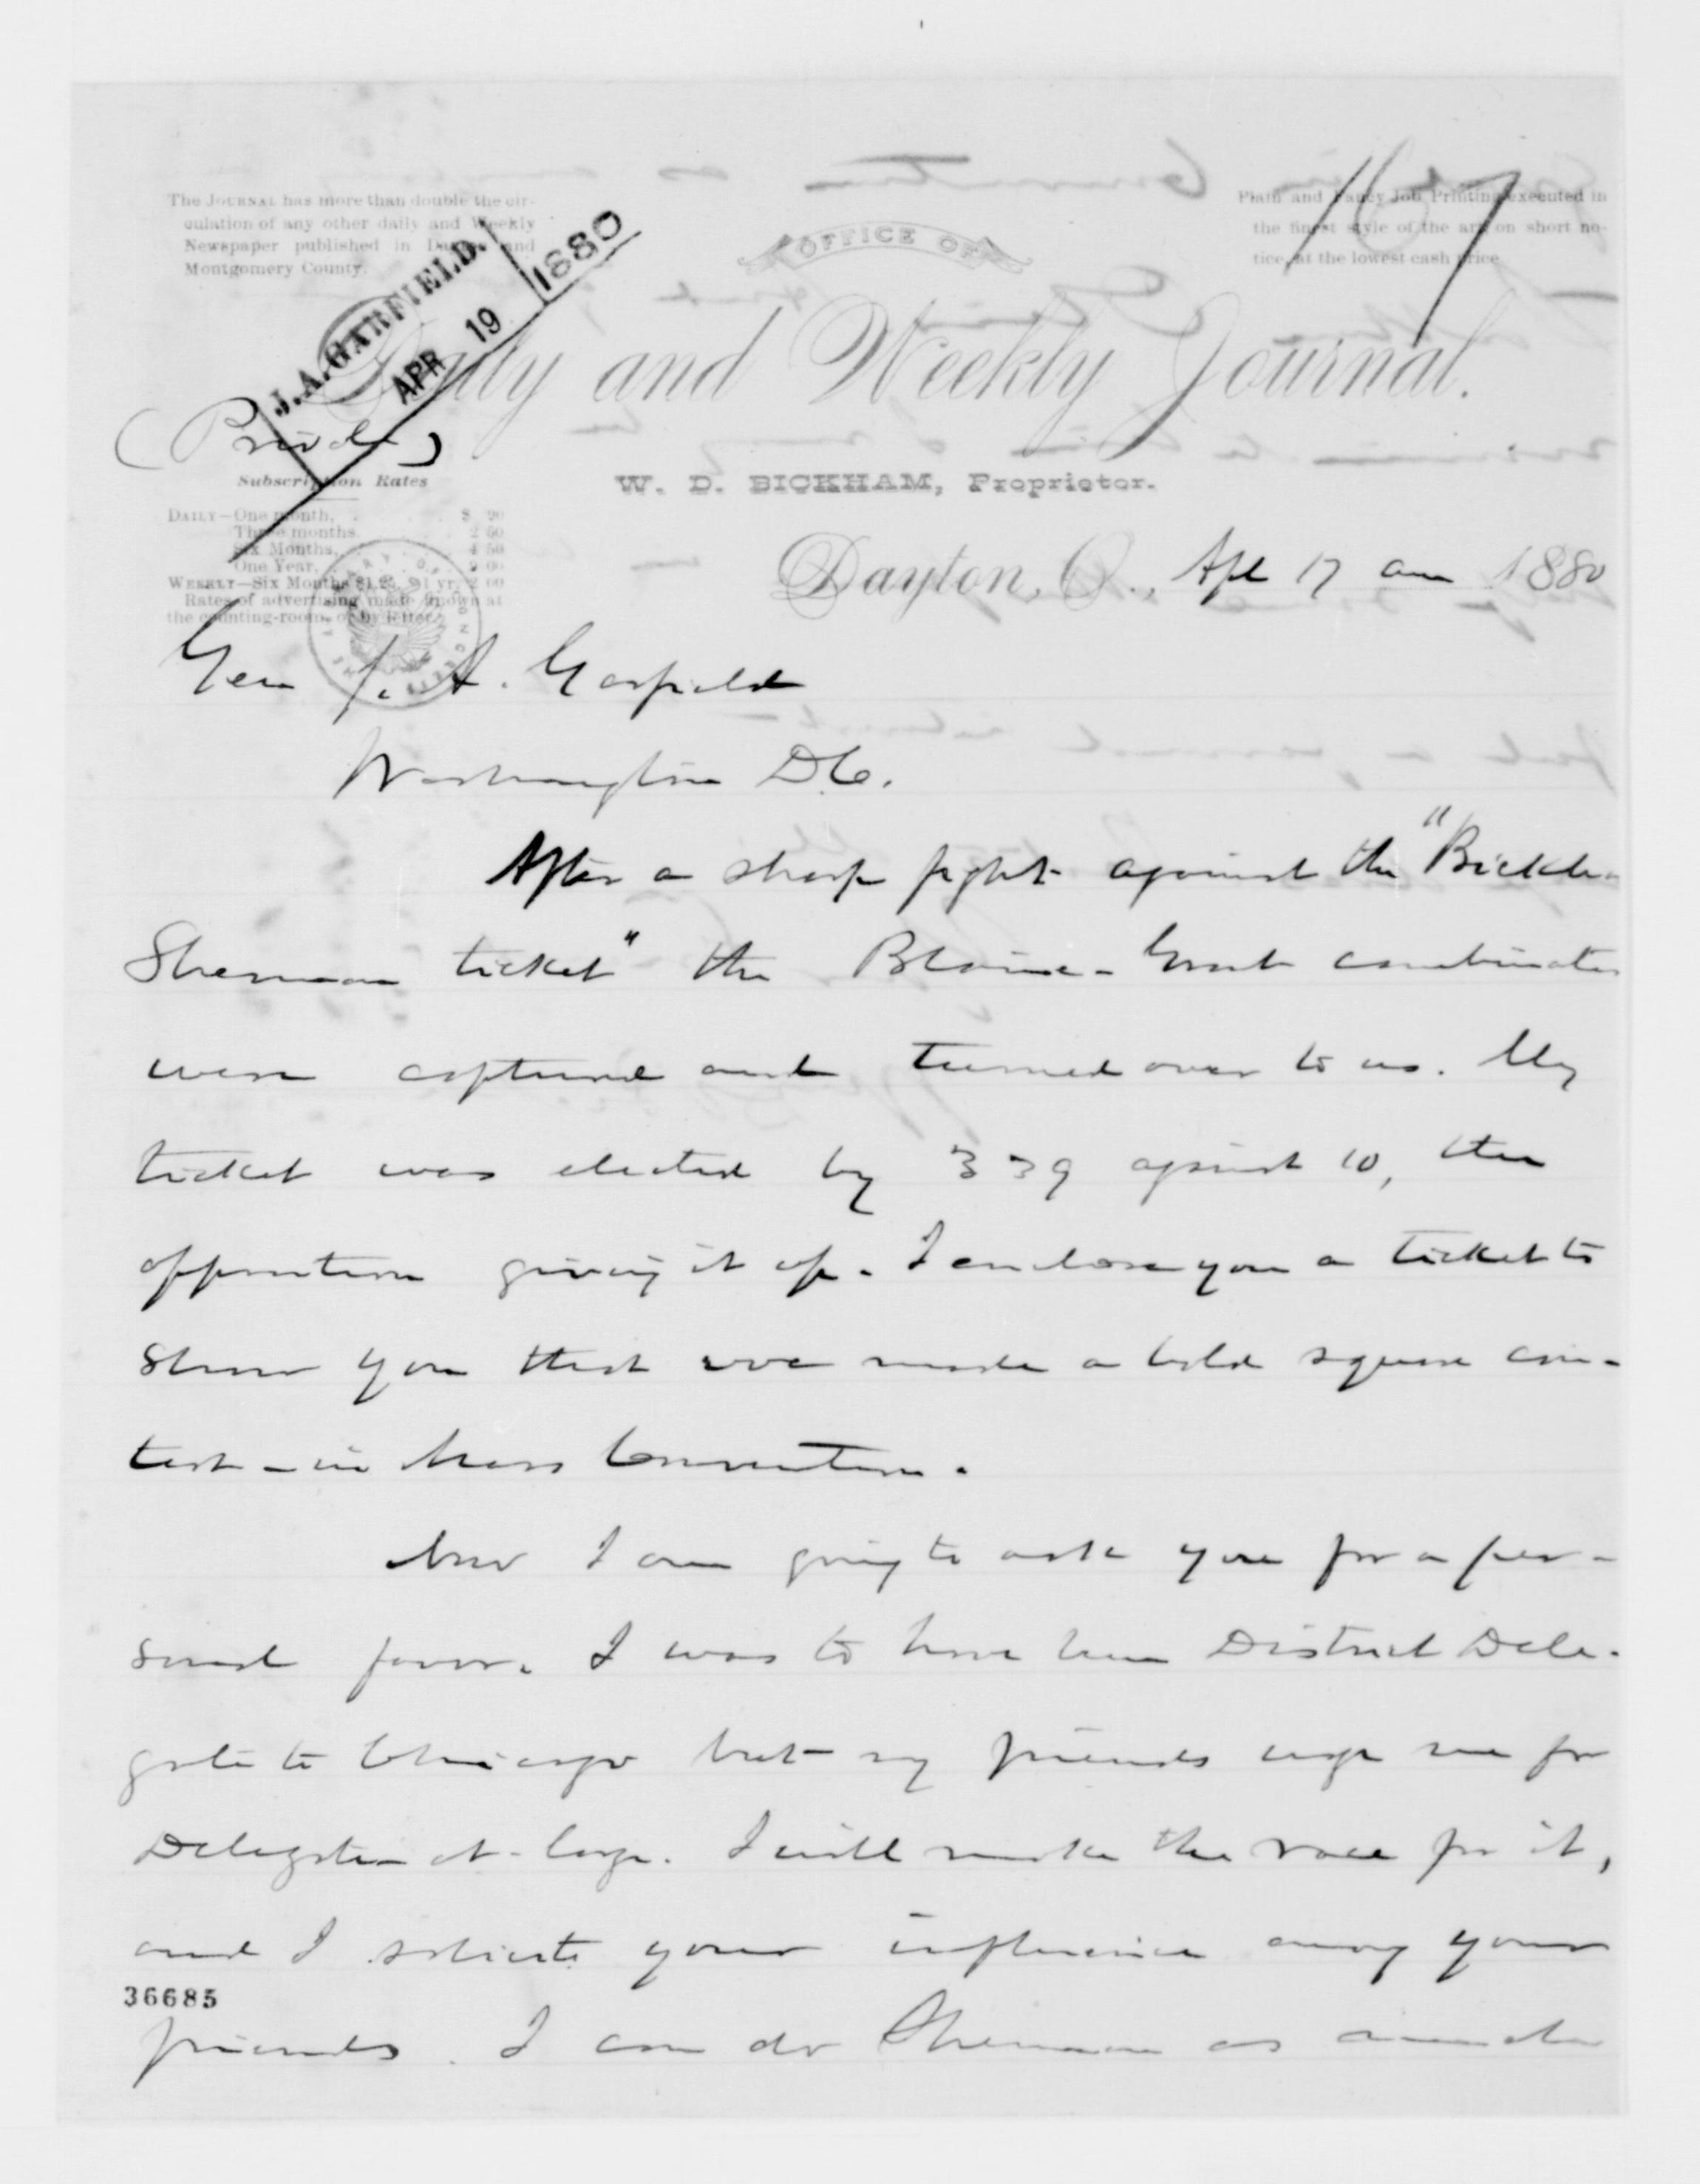 The JOURNAL has more than double the cir-
culation of any other daily and Weekly
Newspaper published in Dayton and
Montgomery County.
Plain and Fancy Job Printing executed in
the finest style of the art on short no-
tice, at the lowest cash price
167
OFFICE OF
J. A. GARFIELD.
APR 19
1880
Daily and Weekly Journal.
(Private)
W. D. BICKHAM, Proprietor.
Subscription Rates
DAILY—One month, $ 90
Three months. 2 50
Six Months, 4 50
One Year, 9 00
WEEKLY—Six Months $1,25, 1 yr, 2 00
Rates of advertising made known at
the counting-room, or by letter.
Dayton, O., Apl 17 am 1880
Gen J. A. Garfield
Washington D.C.
After a sharp fight against the "Bickham
Sherman ticket" the Blaine-Grant combination
were captured and turned over to us. My
ticket was elected by 339 against 10, the
opposition giving it up. I enclose you a ticket to
show you that we made a bold square con-
test - in Mass Convention.
Now I am going to ask you for a per-
sonal favor. I was to have been District Dele-
gate to Chicago but my friends urge me for
Delegate-at-large. I will make the race for it,
and I solicit your influence among your
36685
friends. I can do Sherman as much